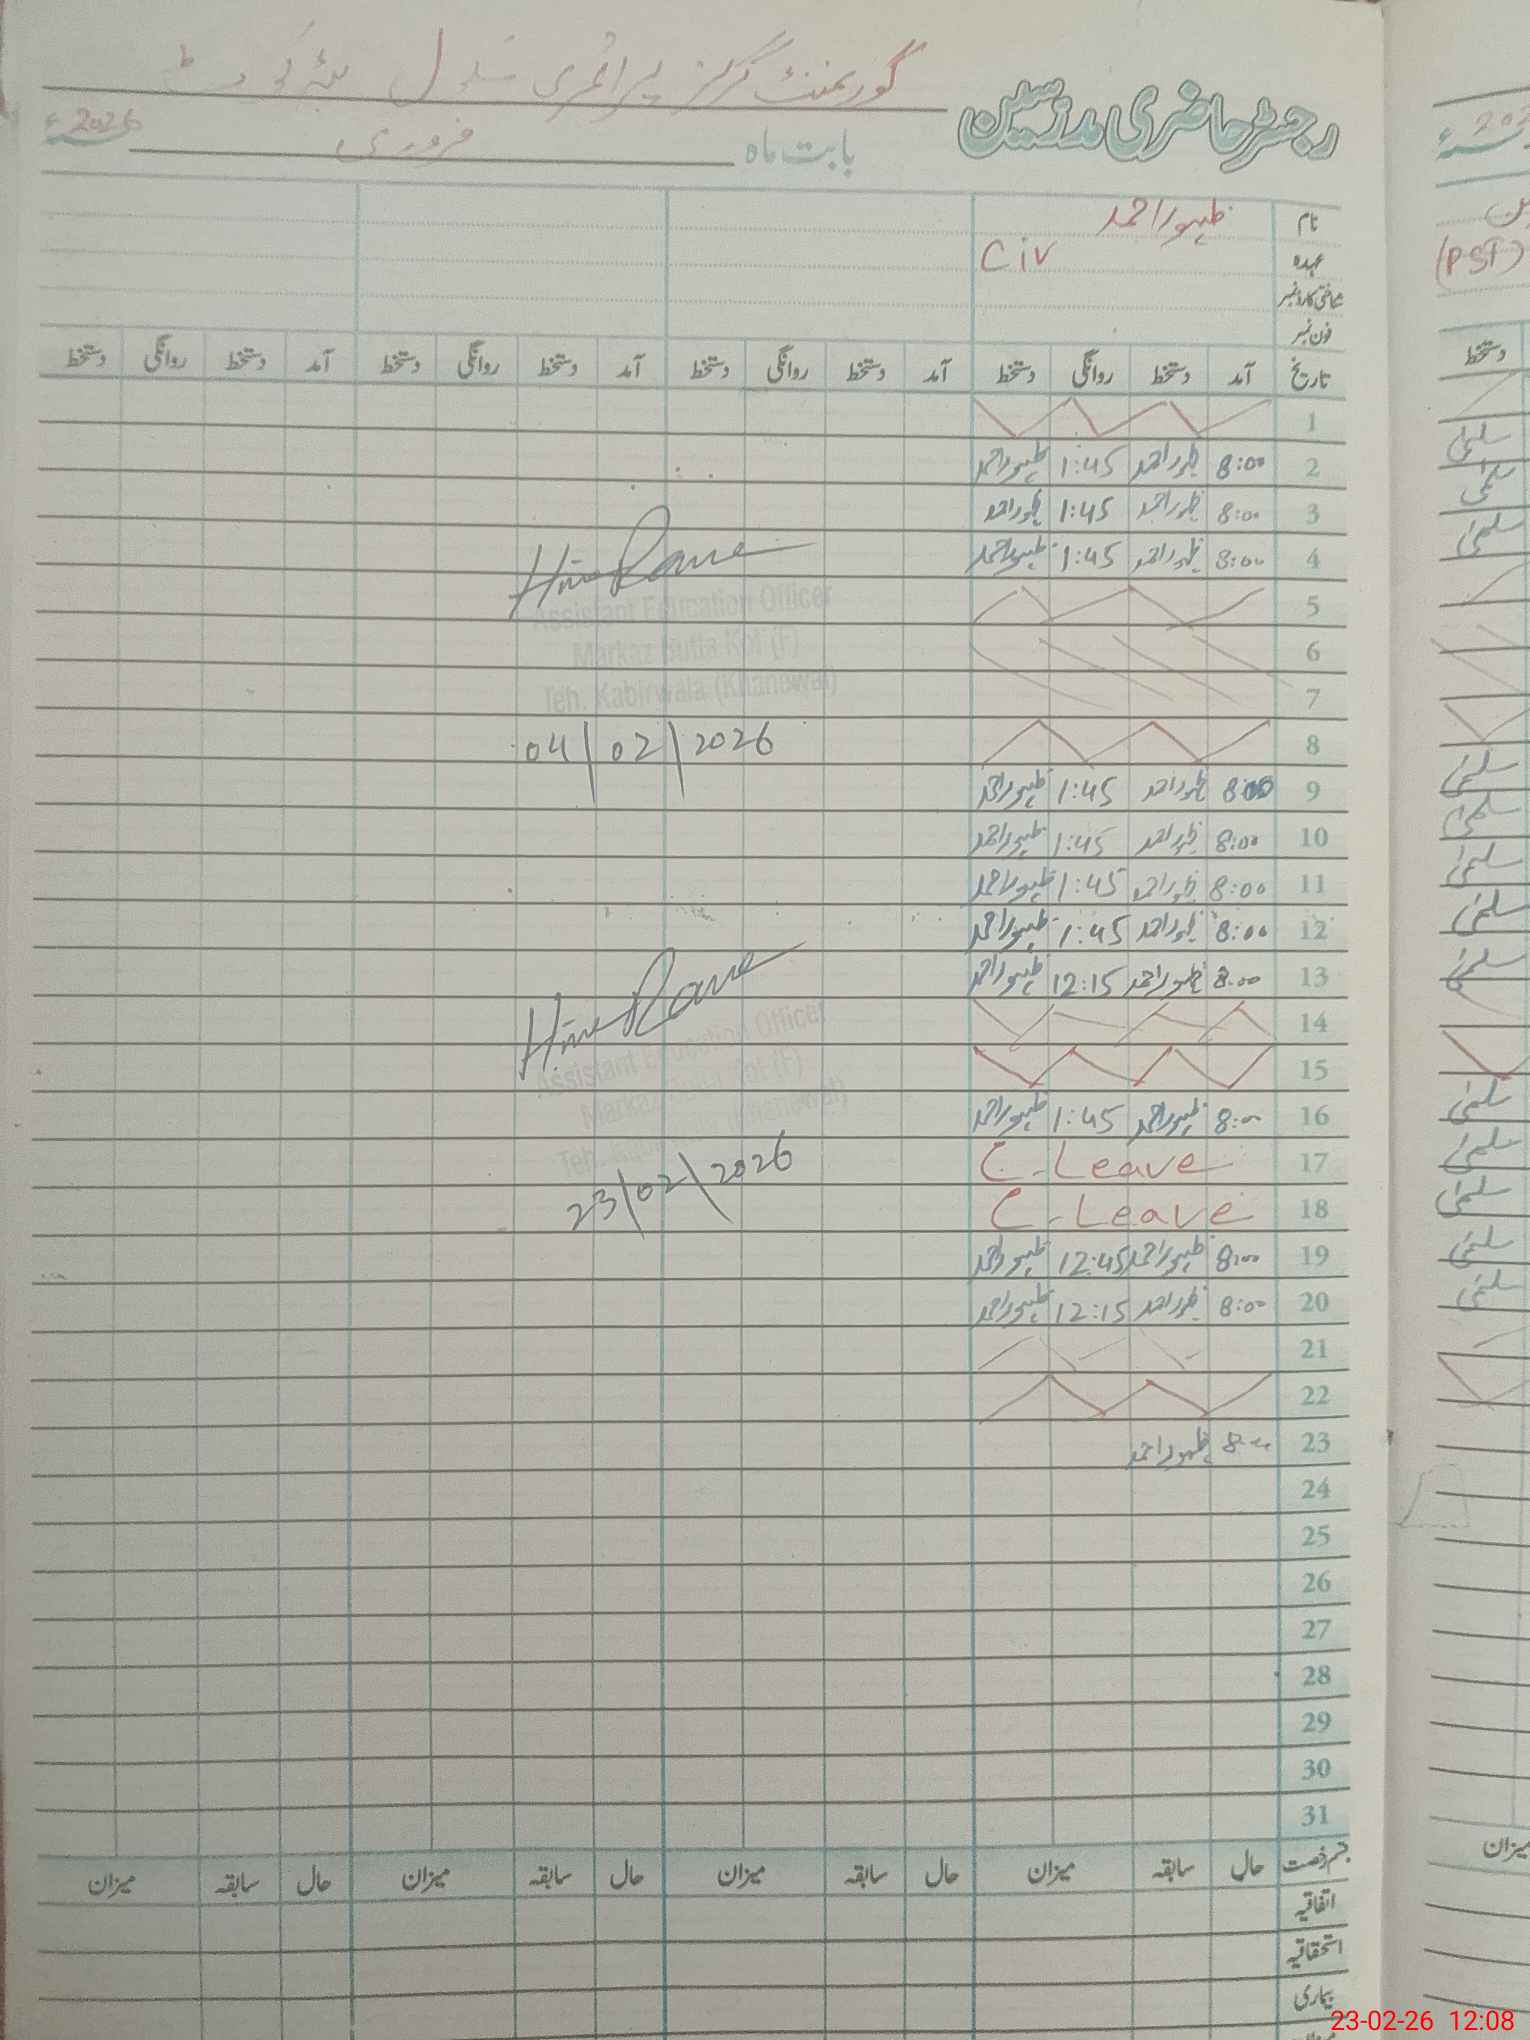 گورنمنٹ گرلز پرائمری سکول
رجسٹر حاضری مدرسین
بابت ماہ فروری 2026ء
نام ظہور احمد
عہدہ Civ
شناختی کارڈ نمبر
فون نمبر
تاریخ آمد دستخط روانگی دستخط آمد دستخط روانگی دستخط آمد دستخط روانگی دستخط آمد دستخط روانگی دستخط
1
2 8:00 ظہور احمد 1:45 ظہور احمد
3 8:00 ظہور احمد 1:45 ظہور احمد
4 8:00 ظہور احمد 1:45 ظہور احمد
5
Assistant Education Officer
6
Markaz Butta Kot (F)
7
Teh. Kabirwala (Khanewal)
8
04/02/2026
9 8:00 ظہور احمد 1:45 ظہور احمد
10 8:00 ظہور احمد 1:45 ظہور احمد
11 8:00 ظہور احمد 1:45 ظہور احمد
12 8:00 ظہور احمد 1:45 ظہور احمد
13 8:00 ظہور احمد 12:15 ظہور احمد
14
Assistant Education Officer
15
Markaz Butta Kot (F)
16 8:00 ظہور احمد 1:45 ظہور احمد
17 C-Leave
23/02/2026
18 C-Leave
19 8:00 ظہور احمد 12:45 ظہور احمد
20 8:00 ظہور احمد 12:15 ظہور احمد
21
22
23 8:00 ظہور احمد
24
25
26
27
28
29
30
31
قسم رخصت حال سابقہ میزان حال سابقہ میزان حال سابقہ میزان حال سابقہ میزان
اتفاقیہ
استحقاقیہ
بیماری
(PST)
دستخط
سلمیٰ
سلمیٰ
سلمیٰ
سلمیٰ
سلمیٰ
سلمیٰ
سلمیٰ
سلمیٰ
سلمیٰ
سلمیٰ
سلمیٰ
سلمیٰ
سلمیٰ
میزان
23-02-26 12:08